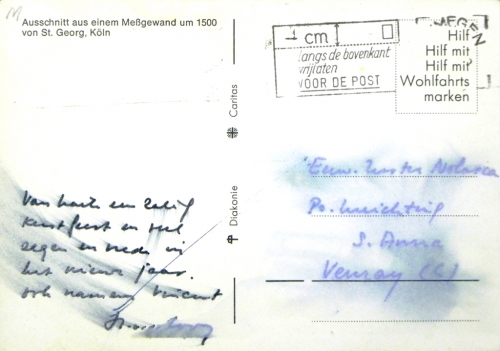 Ausschnitt aus einem Meßgewand um 1500
von St. Georg, Köln
1 cm
langs de bovenkant
vrijlaten
VOOR DE POST
Hilf
Hilf mit
Hilf mit
Wohlfahrts
marken
Caritas
Diakonie
Van harte en zalig
Kerstfeest en veel
zegen en vrede in
het nieuwe jaar.
ook namens Vincent
Eerw. Zuster Nolasca
Ps. Inrichting
S. Anna
Venray (L)